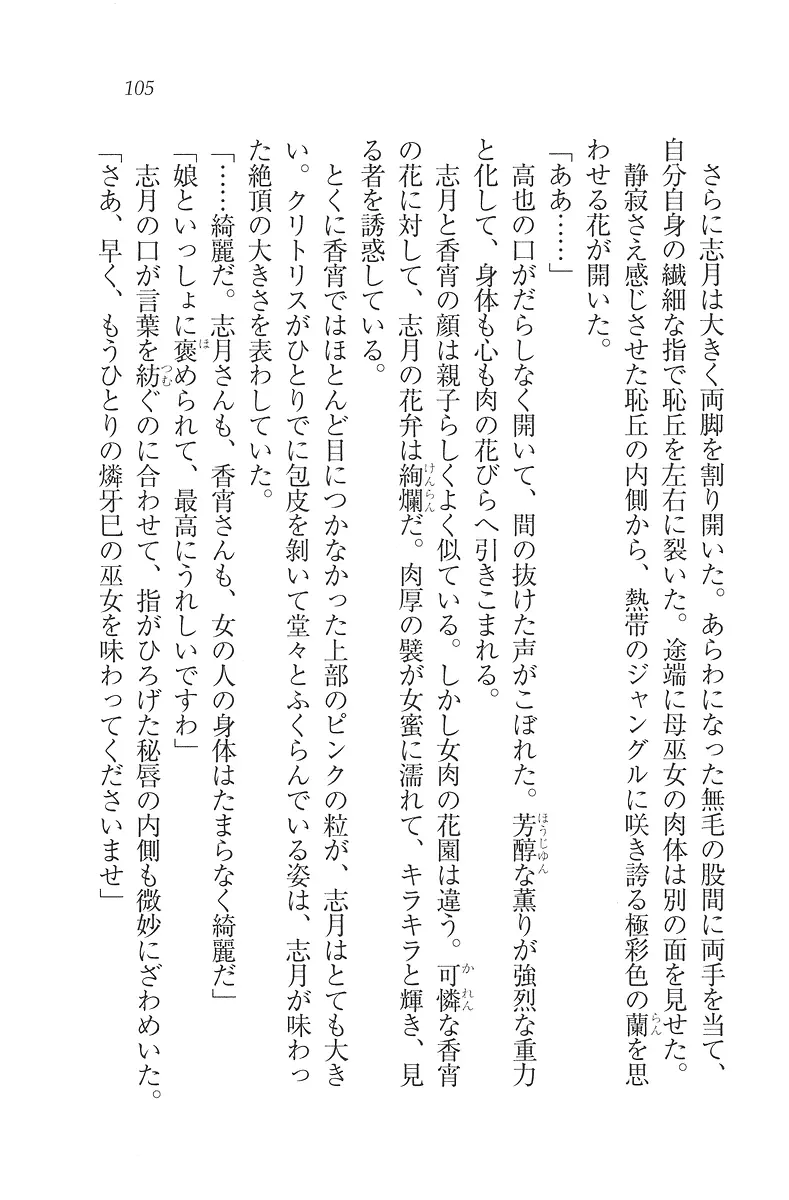 105
さらに志月は大きく両脚を割り開いた。あらわになった無毛の股間に両手を当て、
自分自身の繊細な指で恥丘を左右に裂いた。途端に母巫女の肉体は別の面を見せた。
静寂さえ感じさせた恥丘の内側から、熱帯のジャングルに咲き誇る極彩色の蘭を思
わせる花が開いた。
「ああ……」
高也の口がだらしなく開いて、間の抜けた声がこぼれた。芳醇な薫りが強烈な重力
と化して、身体も心も肉の花びらへ引きこまれる。
志月と香宵の顔は親子らしくよく似ている。しかし女肉の花園は違う。可憐な香宵
の花に対して、志月の花弁は絢爛だ。肉厚の襞が女蜜に濡れて、キラキラと輝き、見
る者を誘惑している。
とくに香宵ではほとんど目につかなかった上部のピンクの粒が、志月はとても大き
い。クリトリスがひとりでに包皮を剥いて堂々とふくらんでいる姿は、志月が味わっ
た絶頂の大きさを表わしていた。
「……綺麗だ。志月さんも、香宵さんも、女の人の身体はたまらなく綺麗だ」
「娘といっしょに褒められて、最高にうれしいですわ」
志月の口が言葉を紡ぐのに合わせて、指がひろげた秘唇の内側も微妙にざわめいた。
「さあ、早く、もうひとりの燐牙巳の巫女を味わってくださいませ」